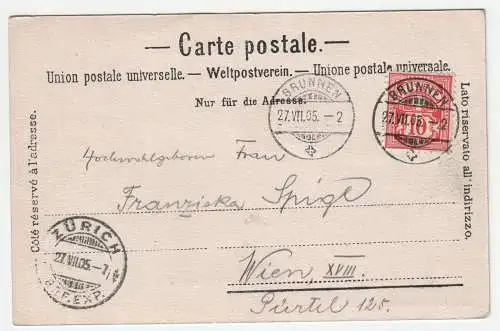 — Carte postale. —
Union postale universelle. — Weltpostverein. — Unione postale universale.
Nur für die Adresse.
BRUNNEN
27.VII.05. – 2
BRUNNEN
27.VII.05. – 2
10
Côté réservé à l'adresse.
Lato riservato all' indirizzo.
Hochwohlgeboren Frau
Franziska Spigl
Wien, XVIII.
Gürtel 125.
ZÜRICH
27.VII.05.–7
BRF.EXP.